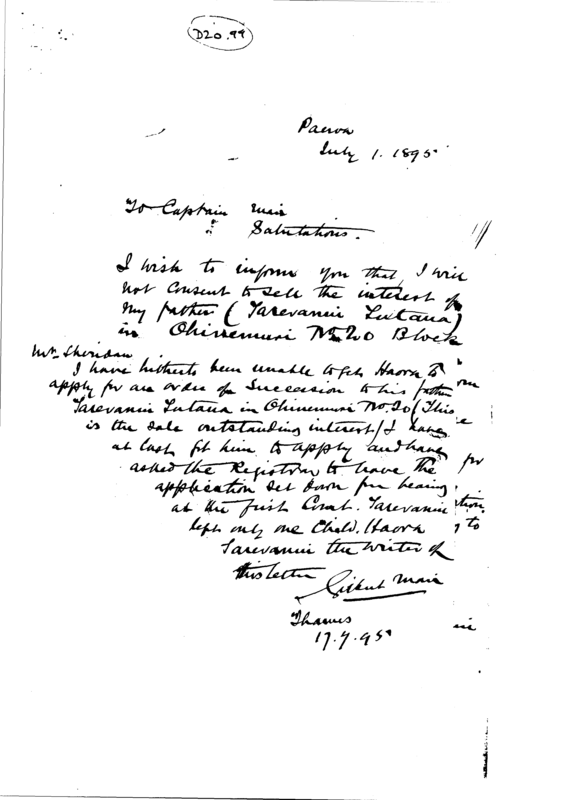 D20.99
Paeroa
July 1. 1895
To Captain Mair
Salutations.
I wish to inform you that I will
not consent to sell the interest of
my father (Tarevanui Tutana)
in Ohinemuri No 20 Block
Mr. Sheridan
I have hitherto been unable to get Haora to
apply for an order of succession to his father
Tarevanui Tutana in Ohinemuri No. 20 (This
is the sole outstanding interest) I have
at last got him to apply and have
asked the Registrar to have the
application set down for hearing
at the first Court. Tarevanui
left only one child. Haora
Tarevanui the writer of
this letter
Gilbert Mair
Thames
17.7.95